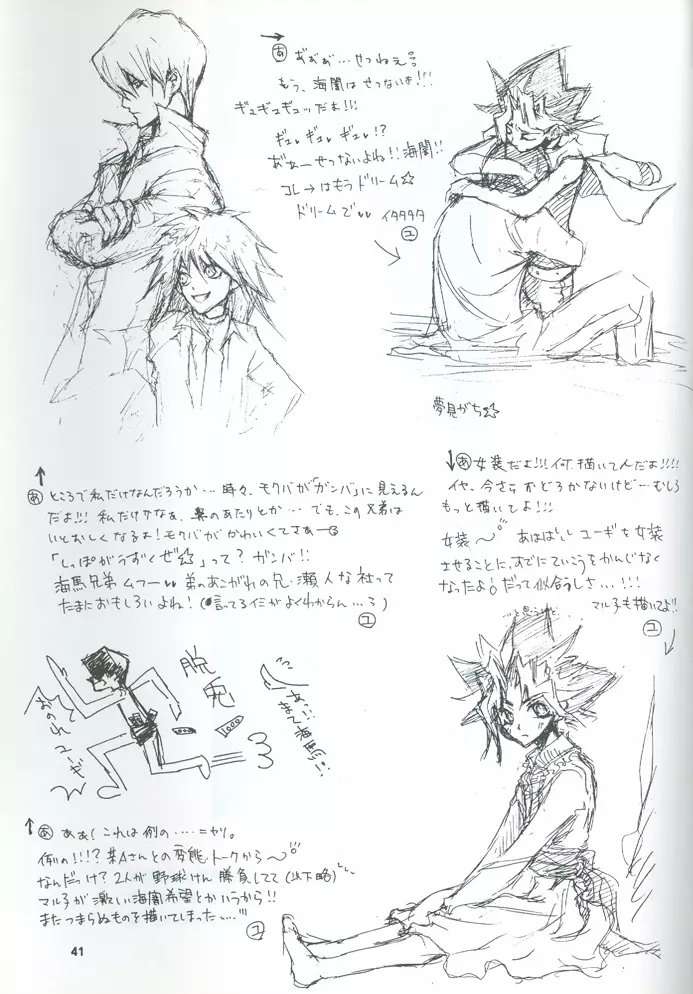 →
あ あ゛あ゛あ゛…せつねえ
もう、海闇はせつないよ!!!
ギュギュギュッだよ!!!
ギュ♥ギュ♥ギュ♥!?
あ゛ぁーせつないよね!!海闇!!
コレ→はもうドリーム☆
ドリームで♥♥イタタタタ
ユ
夢見がち☆
↑
あ ところで私だけなんだろうか…時々、モクバが「ガンバ」に見えるん
だよ!!! 私だけかなぁ、鼻のあたりとか…でも、この兄弟は
いとおしくなるよ!モクバがかわいくてさぁー
「しっぽがうずくぜ☆」って?ガンバ!!
海馬兄弟ムフー♥♥弟のあこがれの兄・瀬人な社って
たまにおもしろいよね!(言ってるイミがよくわからん…)
ユ
↓あ 女装だよ!!!何、描いてんだよ!!!!
イヤ、今さらおどろかないけど…むしろ
もっと描いてよ!!!
女装〜 あははは ユーギを女装
させることに、すでにていこうをかんじなく
なったよ だって似合うしさ…!!!
マル子も描いてよ!!
…と思うけど
ユ
脱兎
おのれユーギ
あっ!!
まて海馬!!
↑
あ あぁ!これは例の‥‥=セリ。
例の!!!?某Aさんとの変態トークから〜
なんだっけ?2人が野球けん勝負してて(以下略)
マル子が激しい海闇希望とかいうから!!
またつまらぬもの描いてしまった…
ユ
41